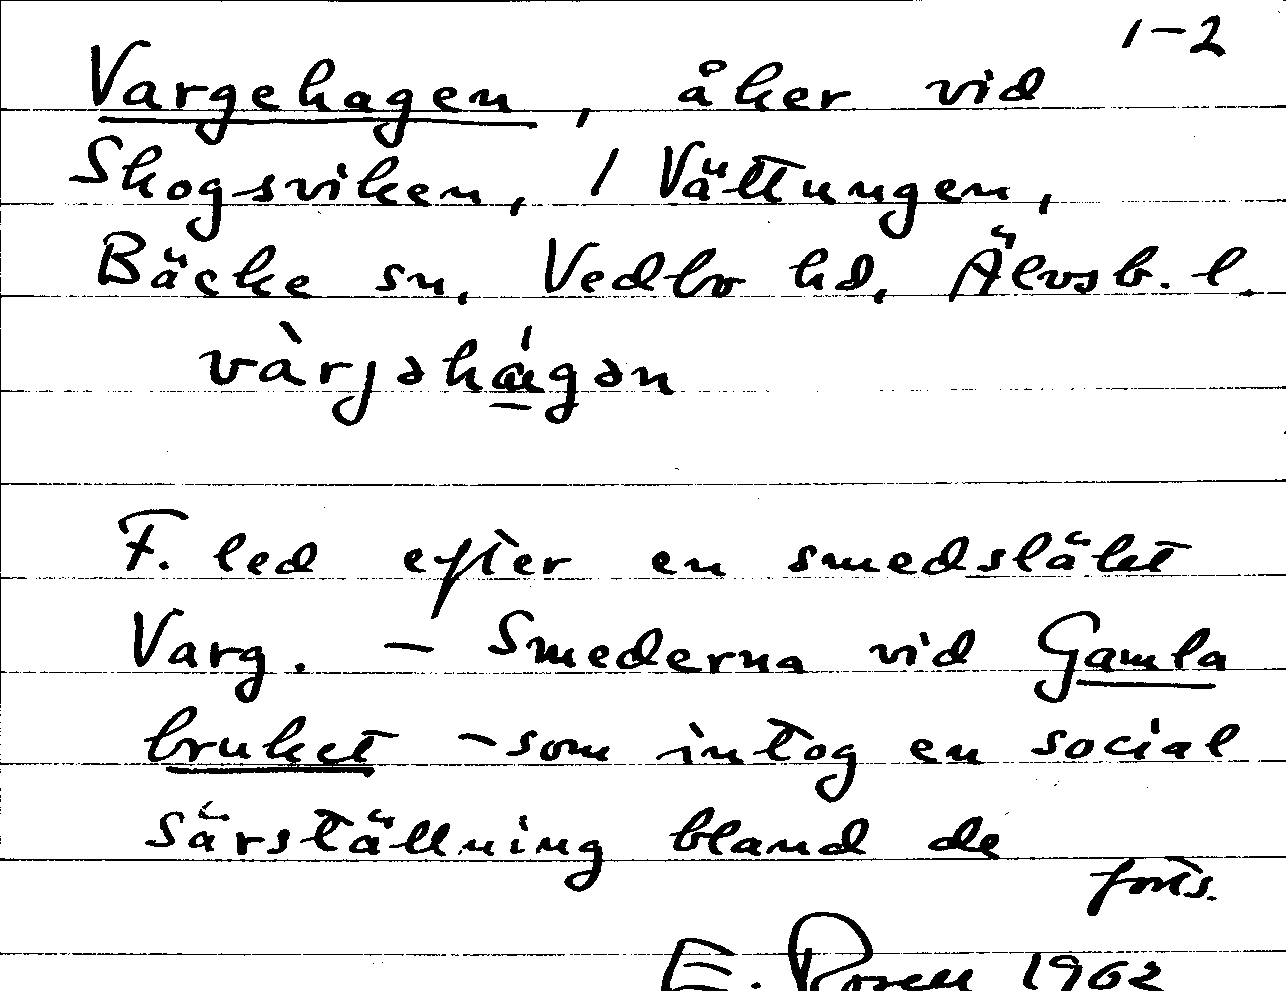 1-2
Vargehagen, åker vid
Skogsviken, 1 Vättungen,
Bäcke sn, Vedbo hd, Älvsb. l.
vàrjəhágən
F. led efter en smedsläkt
Varg. – Smederna vid Gamla
bruket – som intog en social
särställning bland de
forts.
E. Rosell 1962